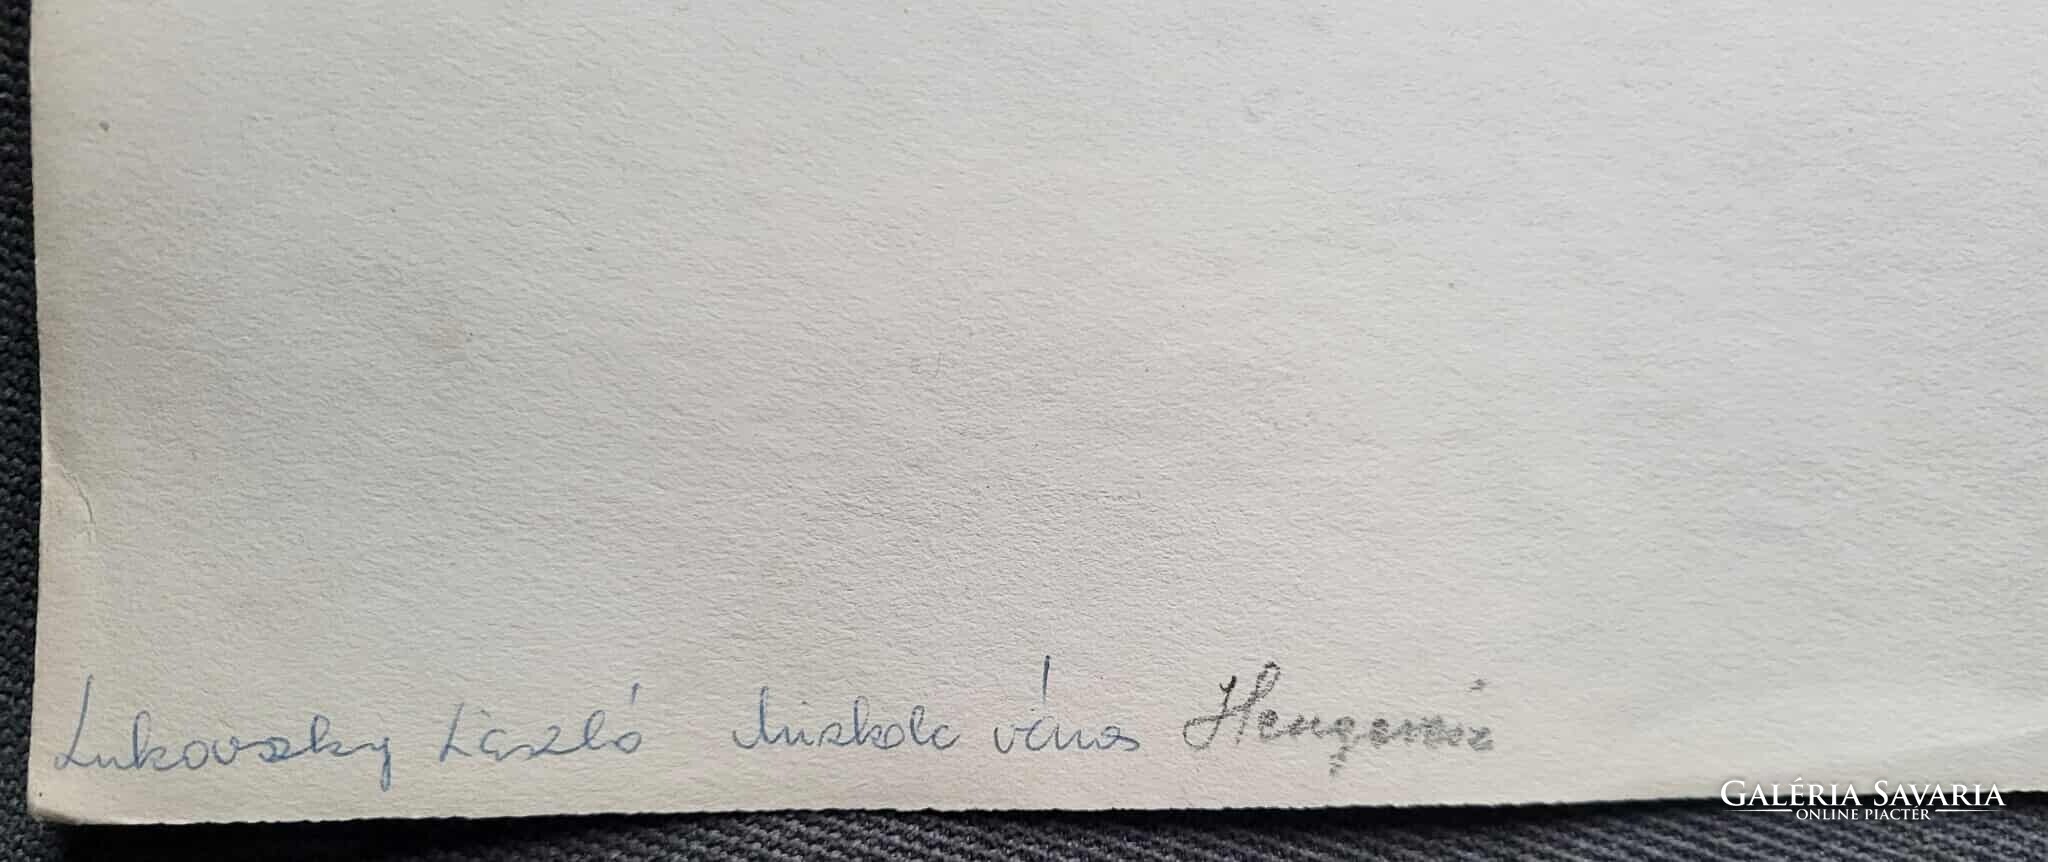 Lukovszky László Miskolc város Hengerész
GALÉRIA SAVARIA
ONLINE PIACTÉR